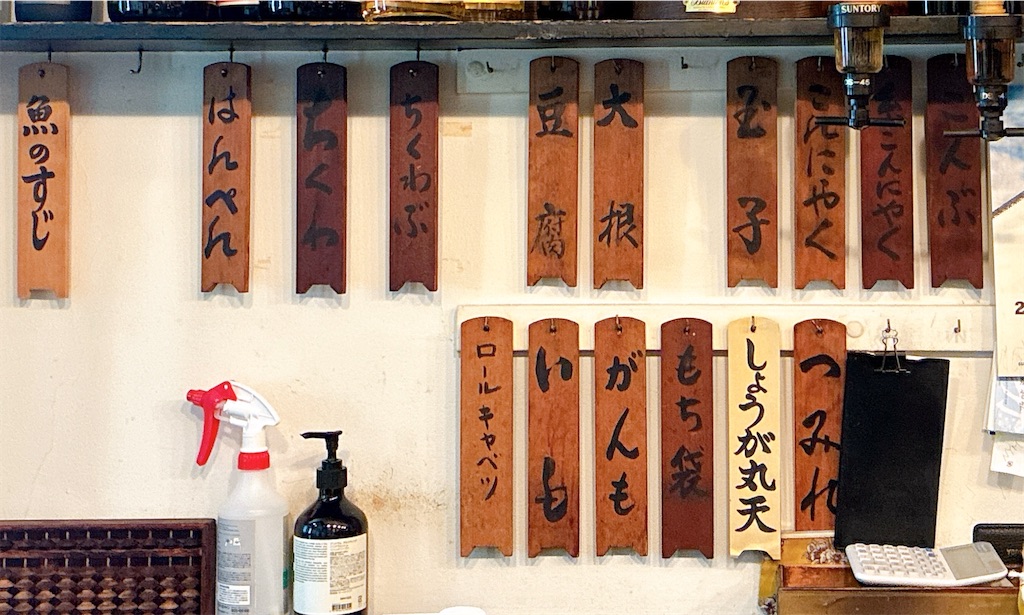 SUNTORY
魚のすじ
はんぺん
ちくわ
ちくわぶ
豆腐
大根
玉子
こんにゃく
玉こんにゃく
こんぶ
ロールキャベツ
いも
がんも
もち袋
しょうが丸天
つみれ